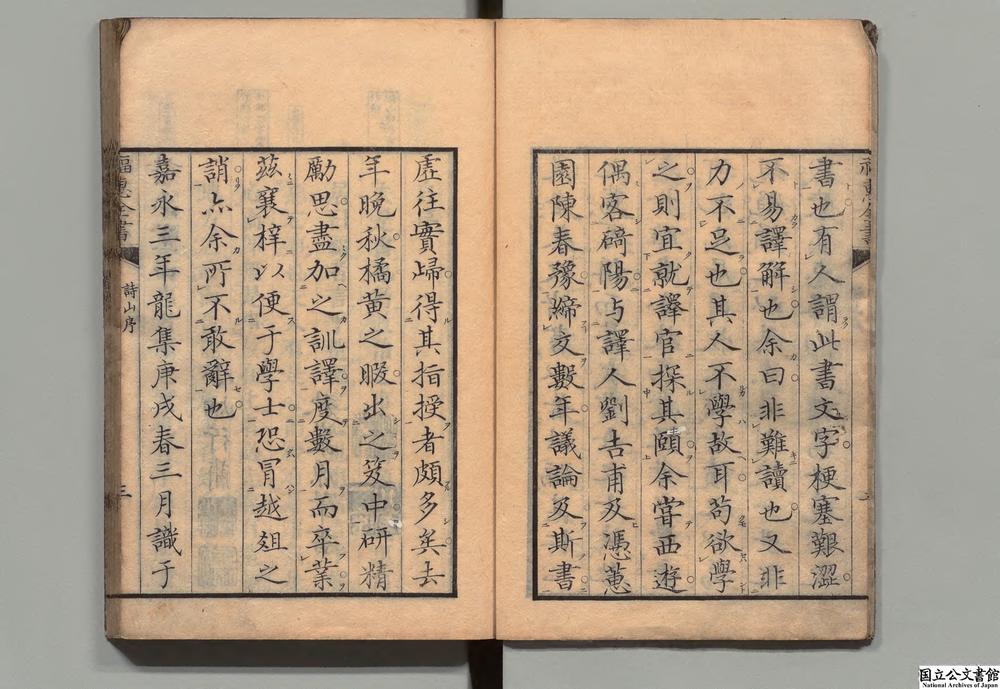 書也有人謂此書文字梗塞艱澀
不易譯解也余曰非難讀也又非
力不足也其人不學故耳苟欲學
之則宜就譯官探其頤余嘗西遊
偶客碕陽与譯人劉吉甫及馮蕙
園陳春豫締交數年議論及斯書
虛往實歸得其指授者頗多矣去
年晚秋橘黃之暇出之笈中研精
勵思盡加之訓譯度數月而卒業
茲襄梓以便于學士恐冒越俎之
誚亦余所不敢辭也
嘉永三年龍集庚戌春三月識于
福惠全書
詩山序
三
国立公文書館
National Archives of Japan